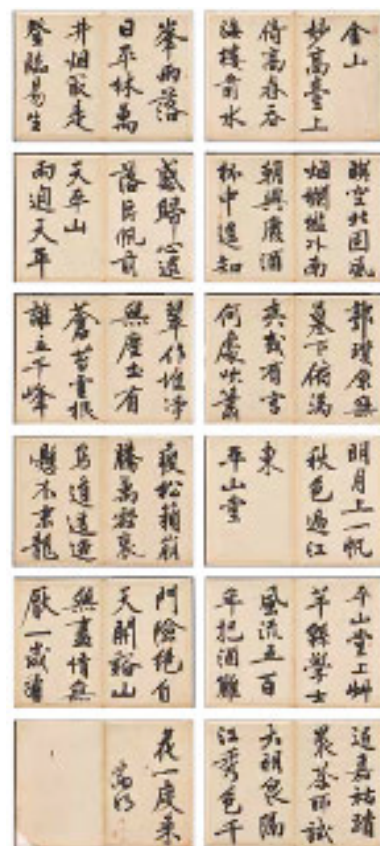 金山
妙高臺上
倚高春吞
海樓前水
暎空北固風
烟欄檻外南
朝興廢酒
杯中遙知
郭璞原無
墓下俯馮
夷或有宮
何處吹簫
明月上一帆
秋色過江
東
平山堂
平山堂上艸
芊緜學士
風流五百
年把酒難
追嘉祐蹟
茶所試
大明泉隔
江秀色千
峯雨落
日平林萬
井烟最是
登臨易生
感歸心遙
落片帆前
天平山
雨過天平
翠作堆淨
無塵土有
蒼苔雲根
離立千峰
瘦松籟崩
騰萬壑哀
鳥道逶迤
懸木末龍
門險絕自
天開谿山
無盡情無
厭一歲看
花一度來
徵明